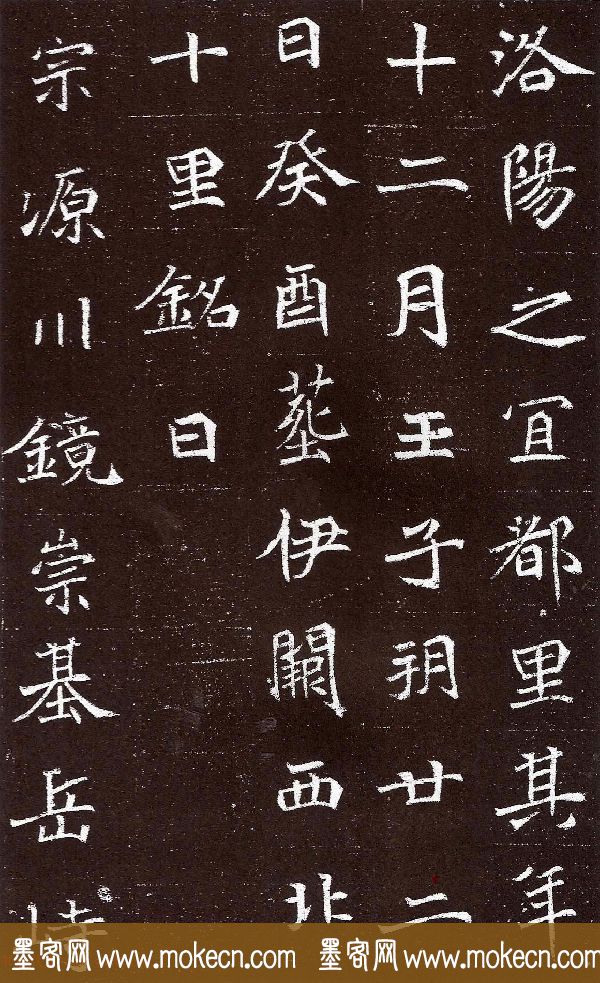 洛陽之冝都里其年
十二月壬子朔廿二
日癸酉塟伊闕西北
十里銘曰
宗源川鏡崇基岳峙
墨客网 www.mokecn.com 墨客网 www.mokecn.com